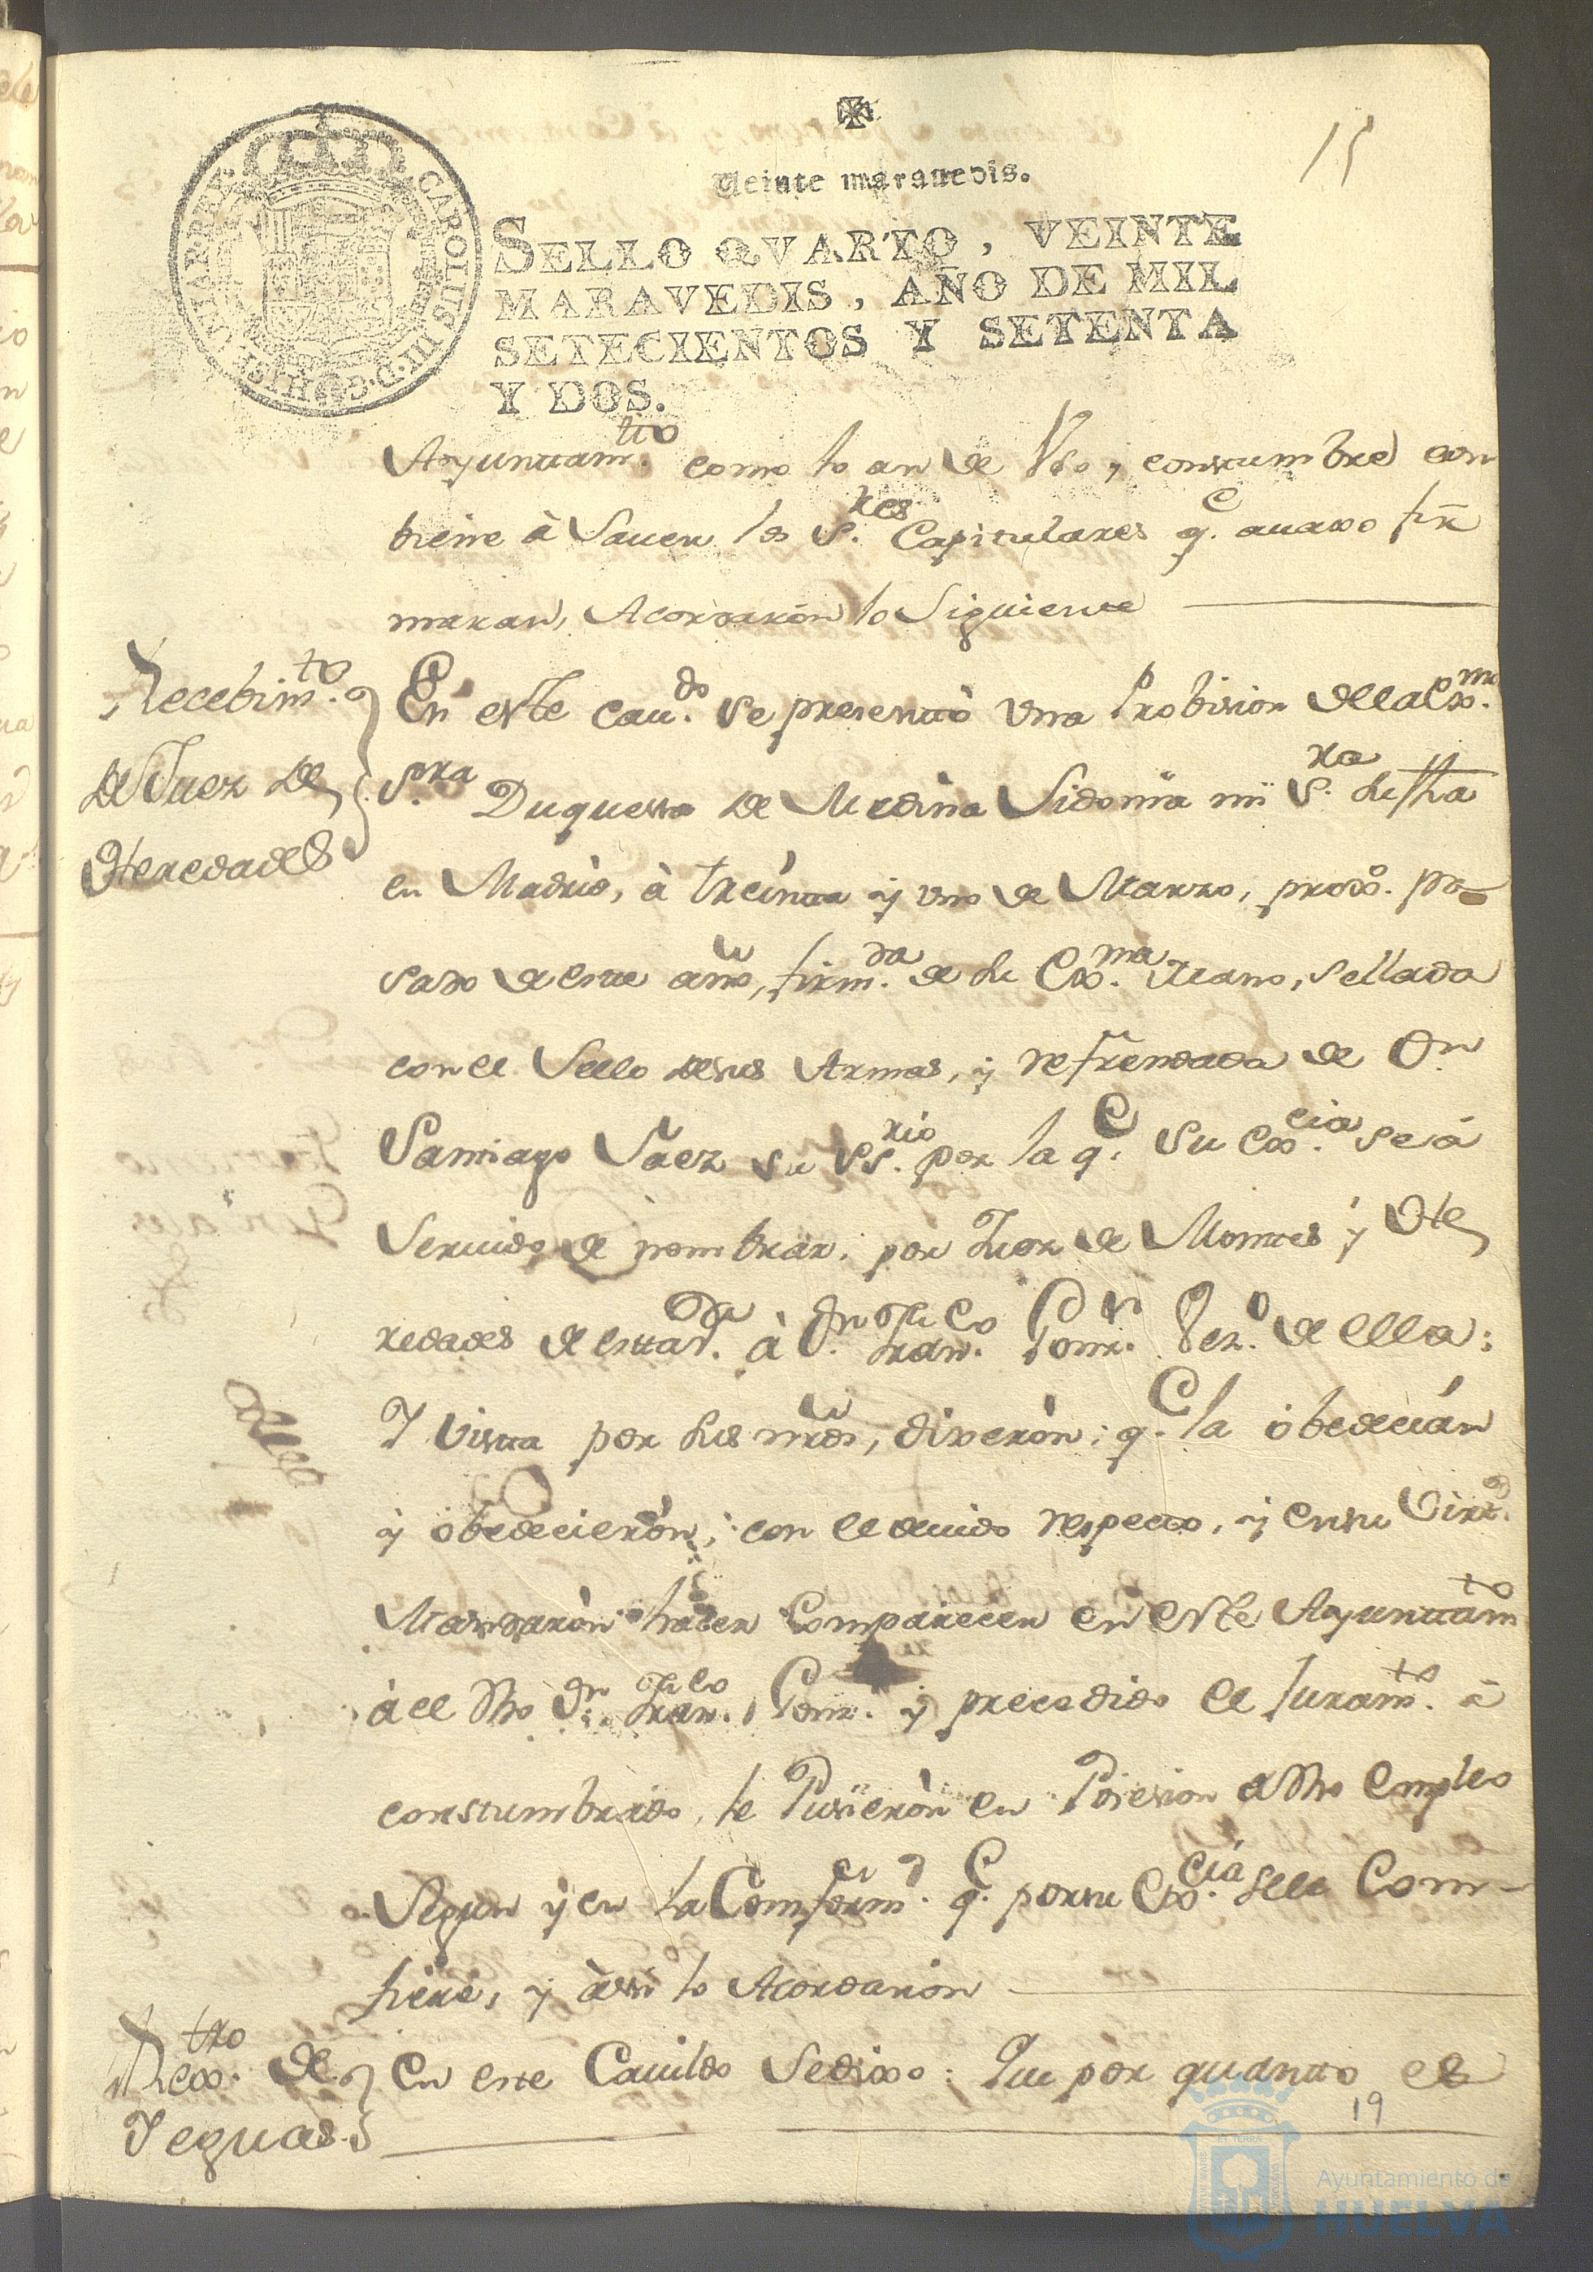 15
Veinte maravedis.
SELLO QVARTO, VEINTE
MARAVEDIS, AÑO DE MIL
SETECIENTOS Y SETENTA
Y DOS.
CAROLUS III. D. G. HISP
Ayunttam.tto como lo an de Vso, y constumbre con
biene à Sauer los S.res Capitulares q.e auaxo fir
maran, Acordarón lo Siguiente
Recebim.to
de Juez de
Heredades
En este cau.do se presentó vna Probision de la Ex.ma
S.ora Duquessa de Medina Sidonia mi S.ra su fha
en Madrid, à treinta y vno de Marzo, prox.o pa
sado de este año, firm.da de su Ex.ma Mano, sellada
con el Sello de sus Armas, y refrendada de Dn
Santiago Saez su Ss.rio por la q.e su Ex.cia se á
Seruido de nombrar, por Juez de Montes y He
redades de estta V.a à D.n Fran.co Gom.z Vez.o de ella:
Y vista por sus mrds, dixerón: q.e la obedecián
y obedecierón, con el deuido respecto, y en su Virt.d
Mandarón hacer Comparecer en este Ayunttam.to
à el dho D.n Fran.co Gom.z y precedido el Juram.to a
constumbrado, le Pusierón en Posesion de dho Empleo
Segun y en la Conform.d q.e por su Ex.cia se le Con-
fiere, y àssi lo Acordarón
Rex.tro de
Yeguas
En este Cauildo Se dixo: Que por quantto es
19
Ayuntamiento de
HUELVA